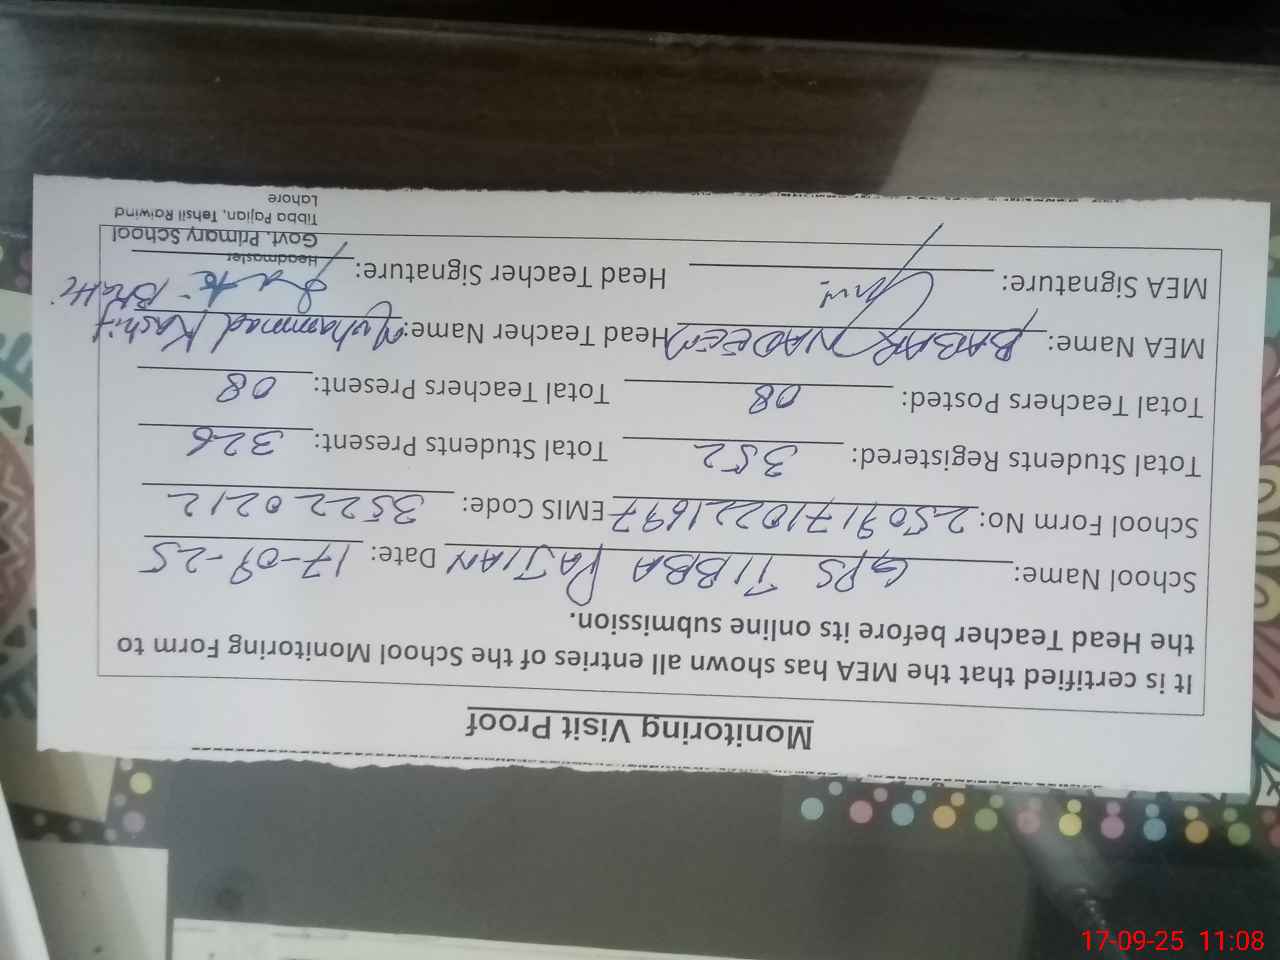 Monitoring Visit Proof
It is certified that the MEA has shown all entries of the School Monitoring Form to
the Head Teacher before its online submission.
School Name: GPS TIBBA PAJIAN Date: 17-09-25
School Form No: 25091710221697 EMIS Code: 35220212
Total Students Registered: 352 Total Students Present: 326
Total Teachers Posted: 08 Total Teachers Present: 08
MEA Name: BABAR NADEEM Head Teacher Name: Muhammad Kashif
MEA Signature: Head Teacher Signature:
Headmaster
Govt. Primary School
Tibba Pajian, Tehsil Raiwind
Lahore
17-09-25 11:08